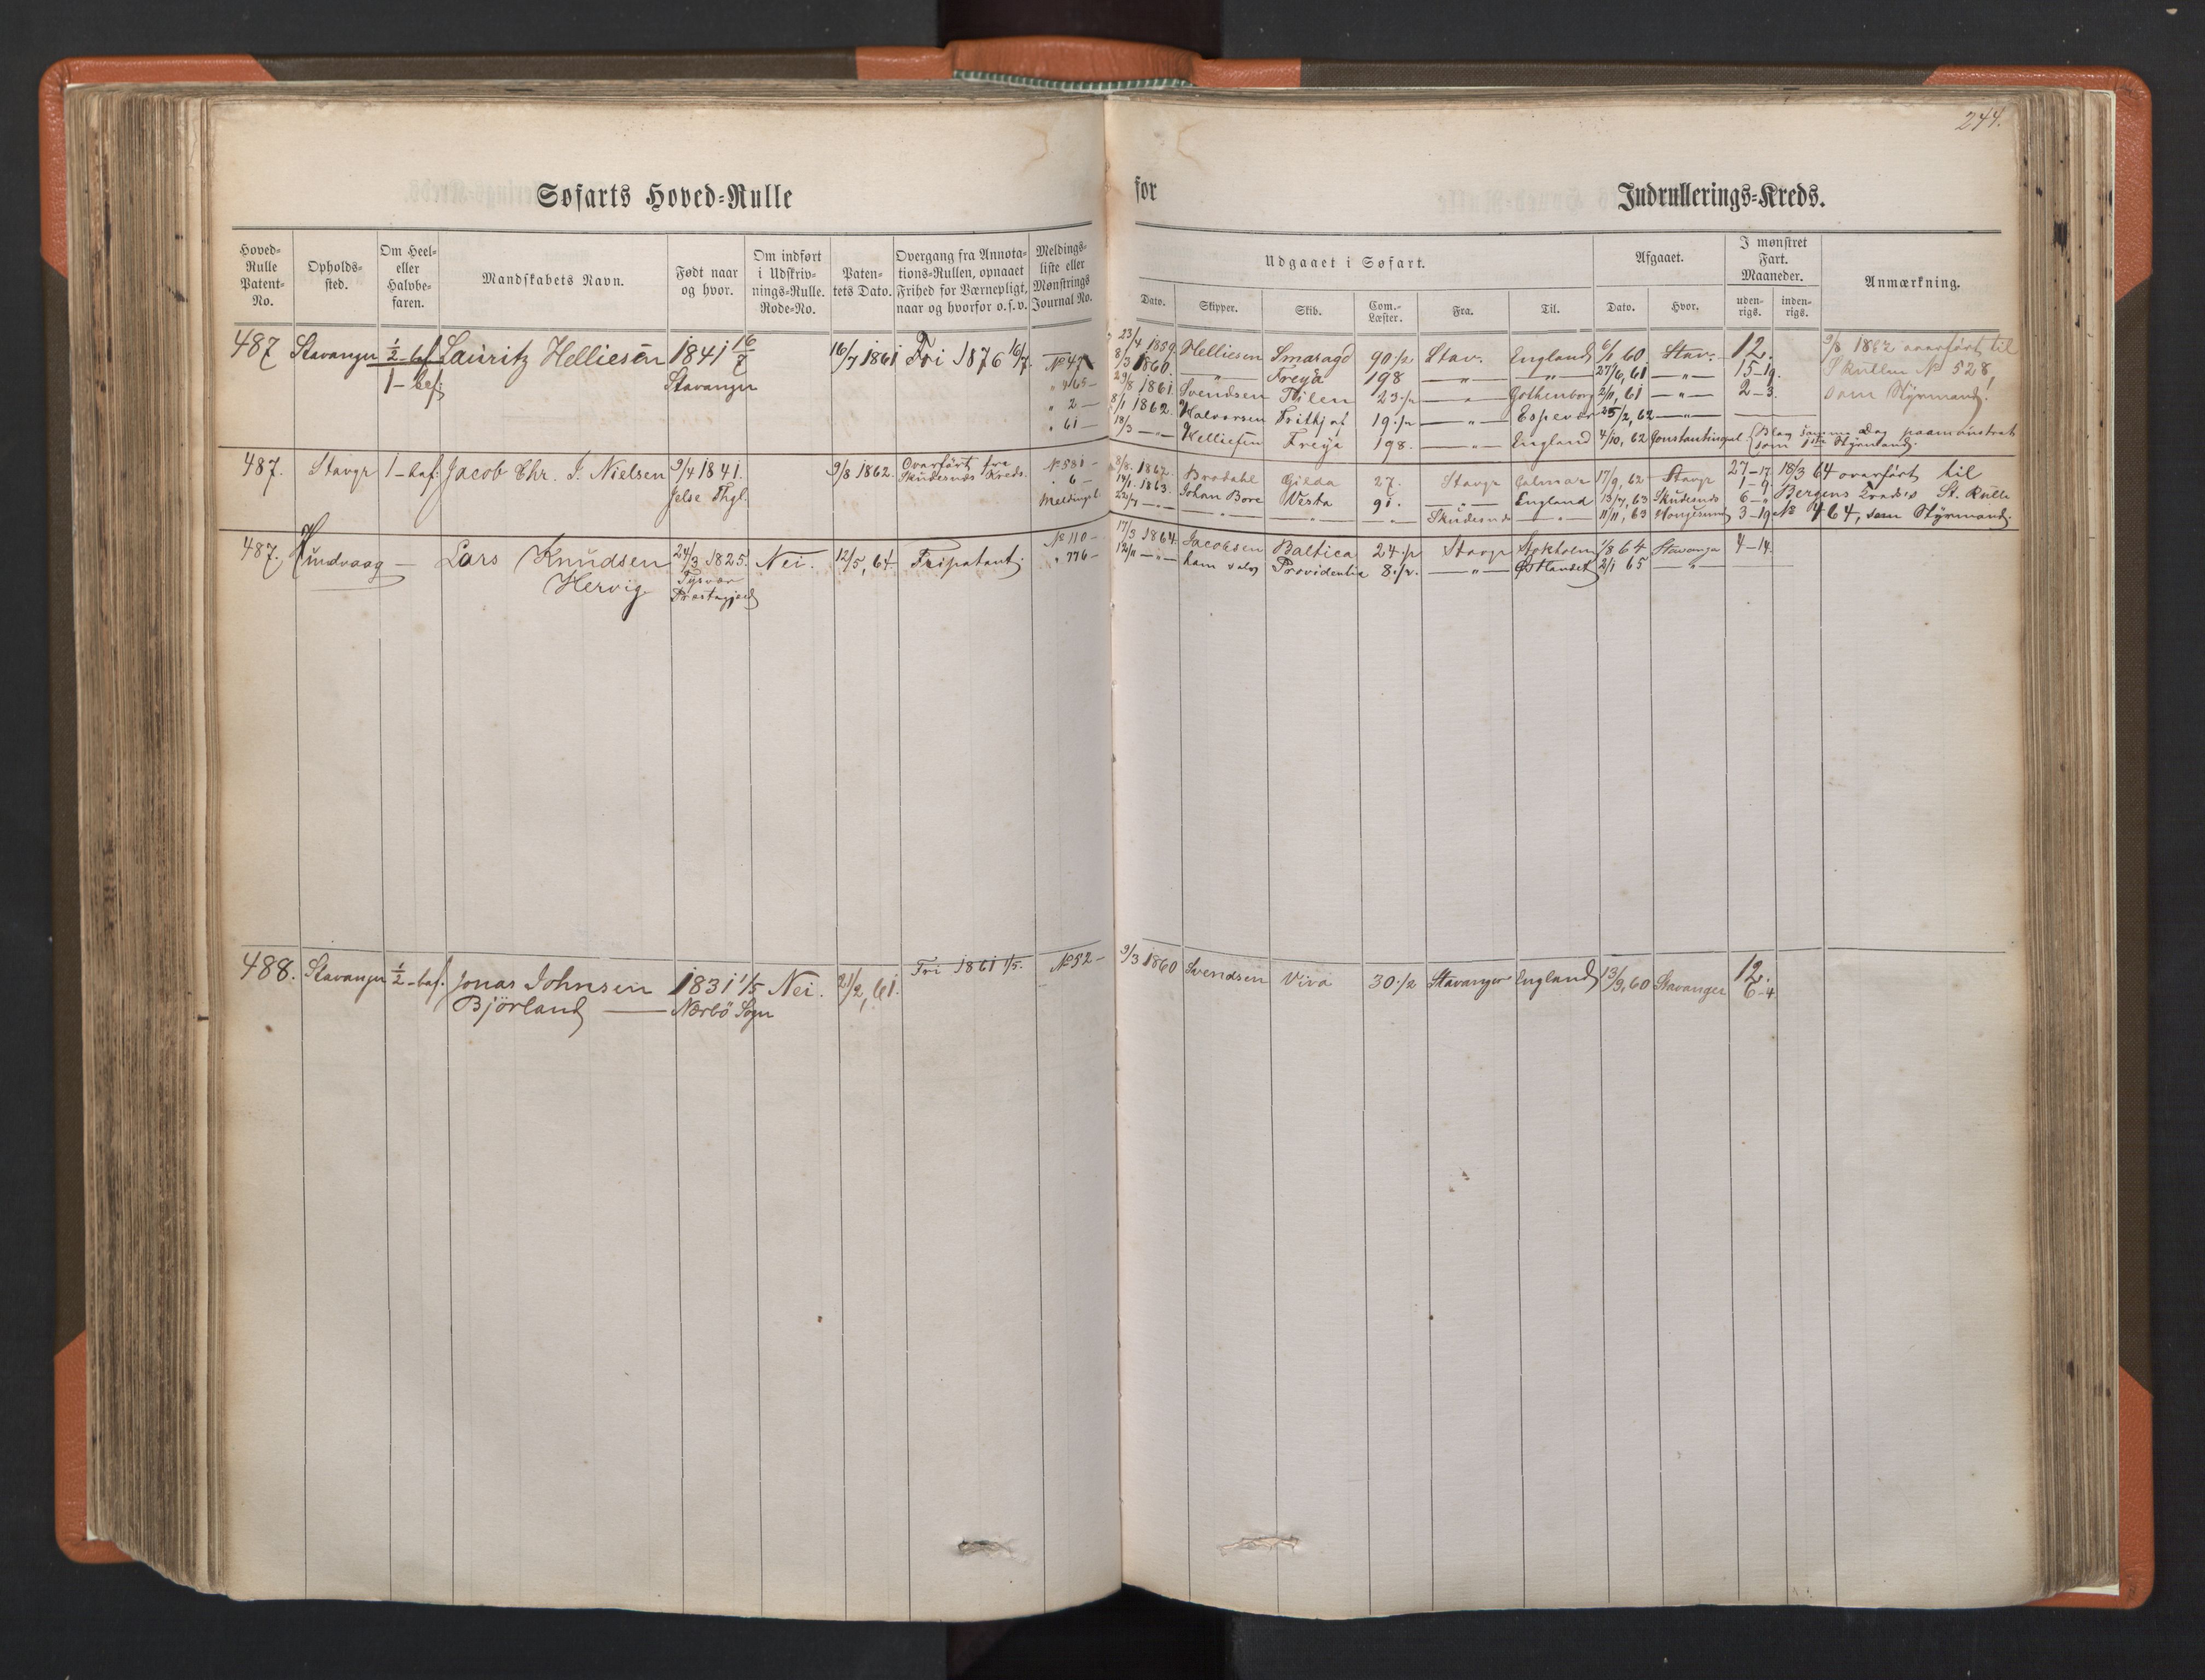 244.
Søfarts Hoved-Rulle for Indrullerings-Kreds.
Hoved-Rulle Patent-No.
Opholds-sted.
Om Heel- eller Halvbe-faren.
Mandskabets Navn.
Født naar og hvor.
Om indført i Udskriv-nings-Rulle. Rode-No.
Paten-tets Dato.
Overgang fra Annota-tions-Rullen, opnaaet Frihed for Værnepligt, naar og hvorfor o.s.v.
Meldings-liste eller Mønstrings Journal No.
Udgaaet i Søfart.
Dato. Skipper. Skib. Com.-Læster. Fra. Til.
Afgaaet.
Dato. Hvor.
I mønstret Fart. Maaneder.
uden-rigs. inden-rigs.
Anmærkning.
487 Stavanger ½-bef. Lauritz Helliesen 1841 16/7 16/7 1861 Fri 1876 16/7. No 47 23/4 1859 Helliesen Smaragd 90 ½ Stav. England 6/1 60 Stav. 12. 9/8 1862 overført til
1-bef. Stavanger " 465- 8/3 1860. —"— Freya 198 —"— —"— 27/6, 61 —"— 15-19. S Rullen No 528,
" 2- 29/8 1861. Svendsen Thilen 23 ½ —"— Gothenborg 2/11, 61 —"— 2-3. som Styrmand!
" 61- 8/1 1862. Halvorsen Frithjof 19 ½ —"— Espevær 25/2, 62 —"—
18/3 —"— Helliesen Freya 198. —"— England 4/10, 62 Constantinopel. Blev samme Dag paamønstret
som 1ste Styrmand.
487. Stavgr 1-bef. Jacob Chr. J. Nielsen 9/4 1841. 9/8 1862. Overført fra No 581- 8/8. 1862. Brodahl Gilda 27. Stavgr Calmar 17/9, 62 Stavgr 27-17. 18/3 64 overført til
Jelse Thgl. Skudesnæs Kreds. " 6- 14/1. 1863. Johan Bore Vesta 91. —"— England 13/7, 63 Skudesnæs 1-9. Bergens Kreds's St. Rulle
Meldingsl. 22/7 —"— —"— —"— —"— Skudesnæs —"— 11/11, 63 Haugesund 6-" 3-19 No 464, som Styrmand.
487. Hundvaag — Lars Knudsen 24/3 1825. Nei. 12/5, 64 Fripatent. No 110- 17/3 1864. Jacobsen Baltica 24 ½ Stavgr Stokholm 1/8 64 Stavanger 4-14.
Hervig Tysvær " 776- 12/11 —"— ham selv Providentia 8 ½. —"— Østlandet 2/1 65 —"—
Præstegjeld
488. Stavanger ½-bef. Jonas Johnsen 1831 1/5 Nei. 21/2, 61. Fri 1861 1/5. No 52- 9/3 1860 Svendsen Viva 30 ½ Stavanger England 13/9, 60 Stavanger 12.
Björland — Nærbö Sogn 6-4